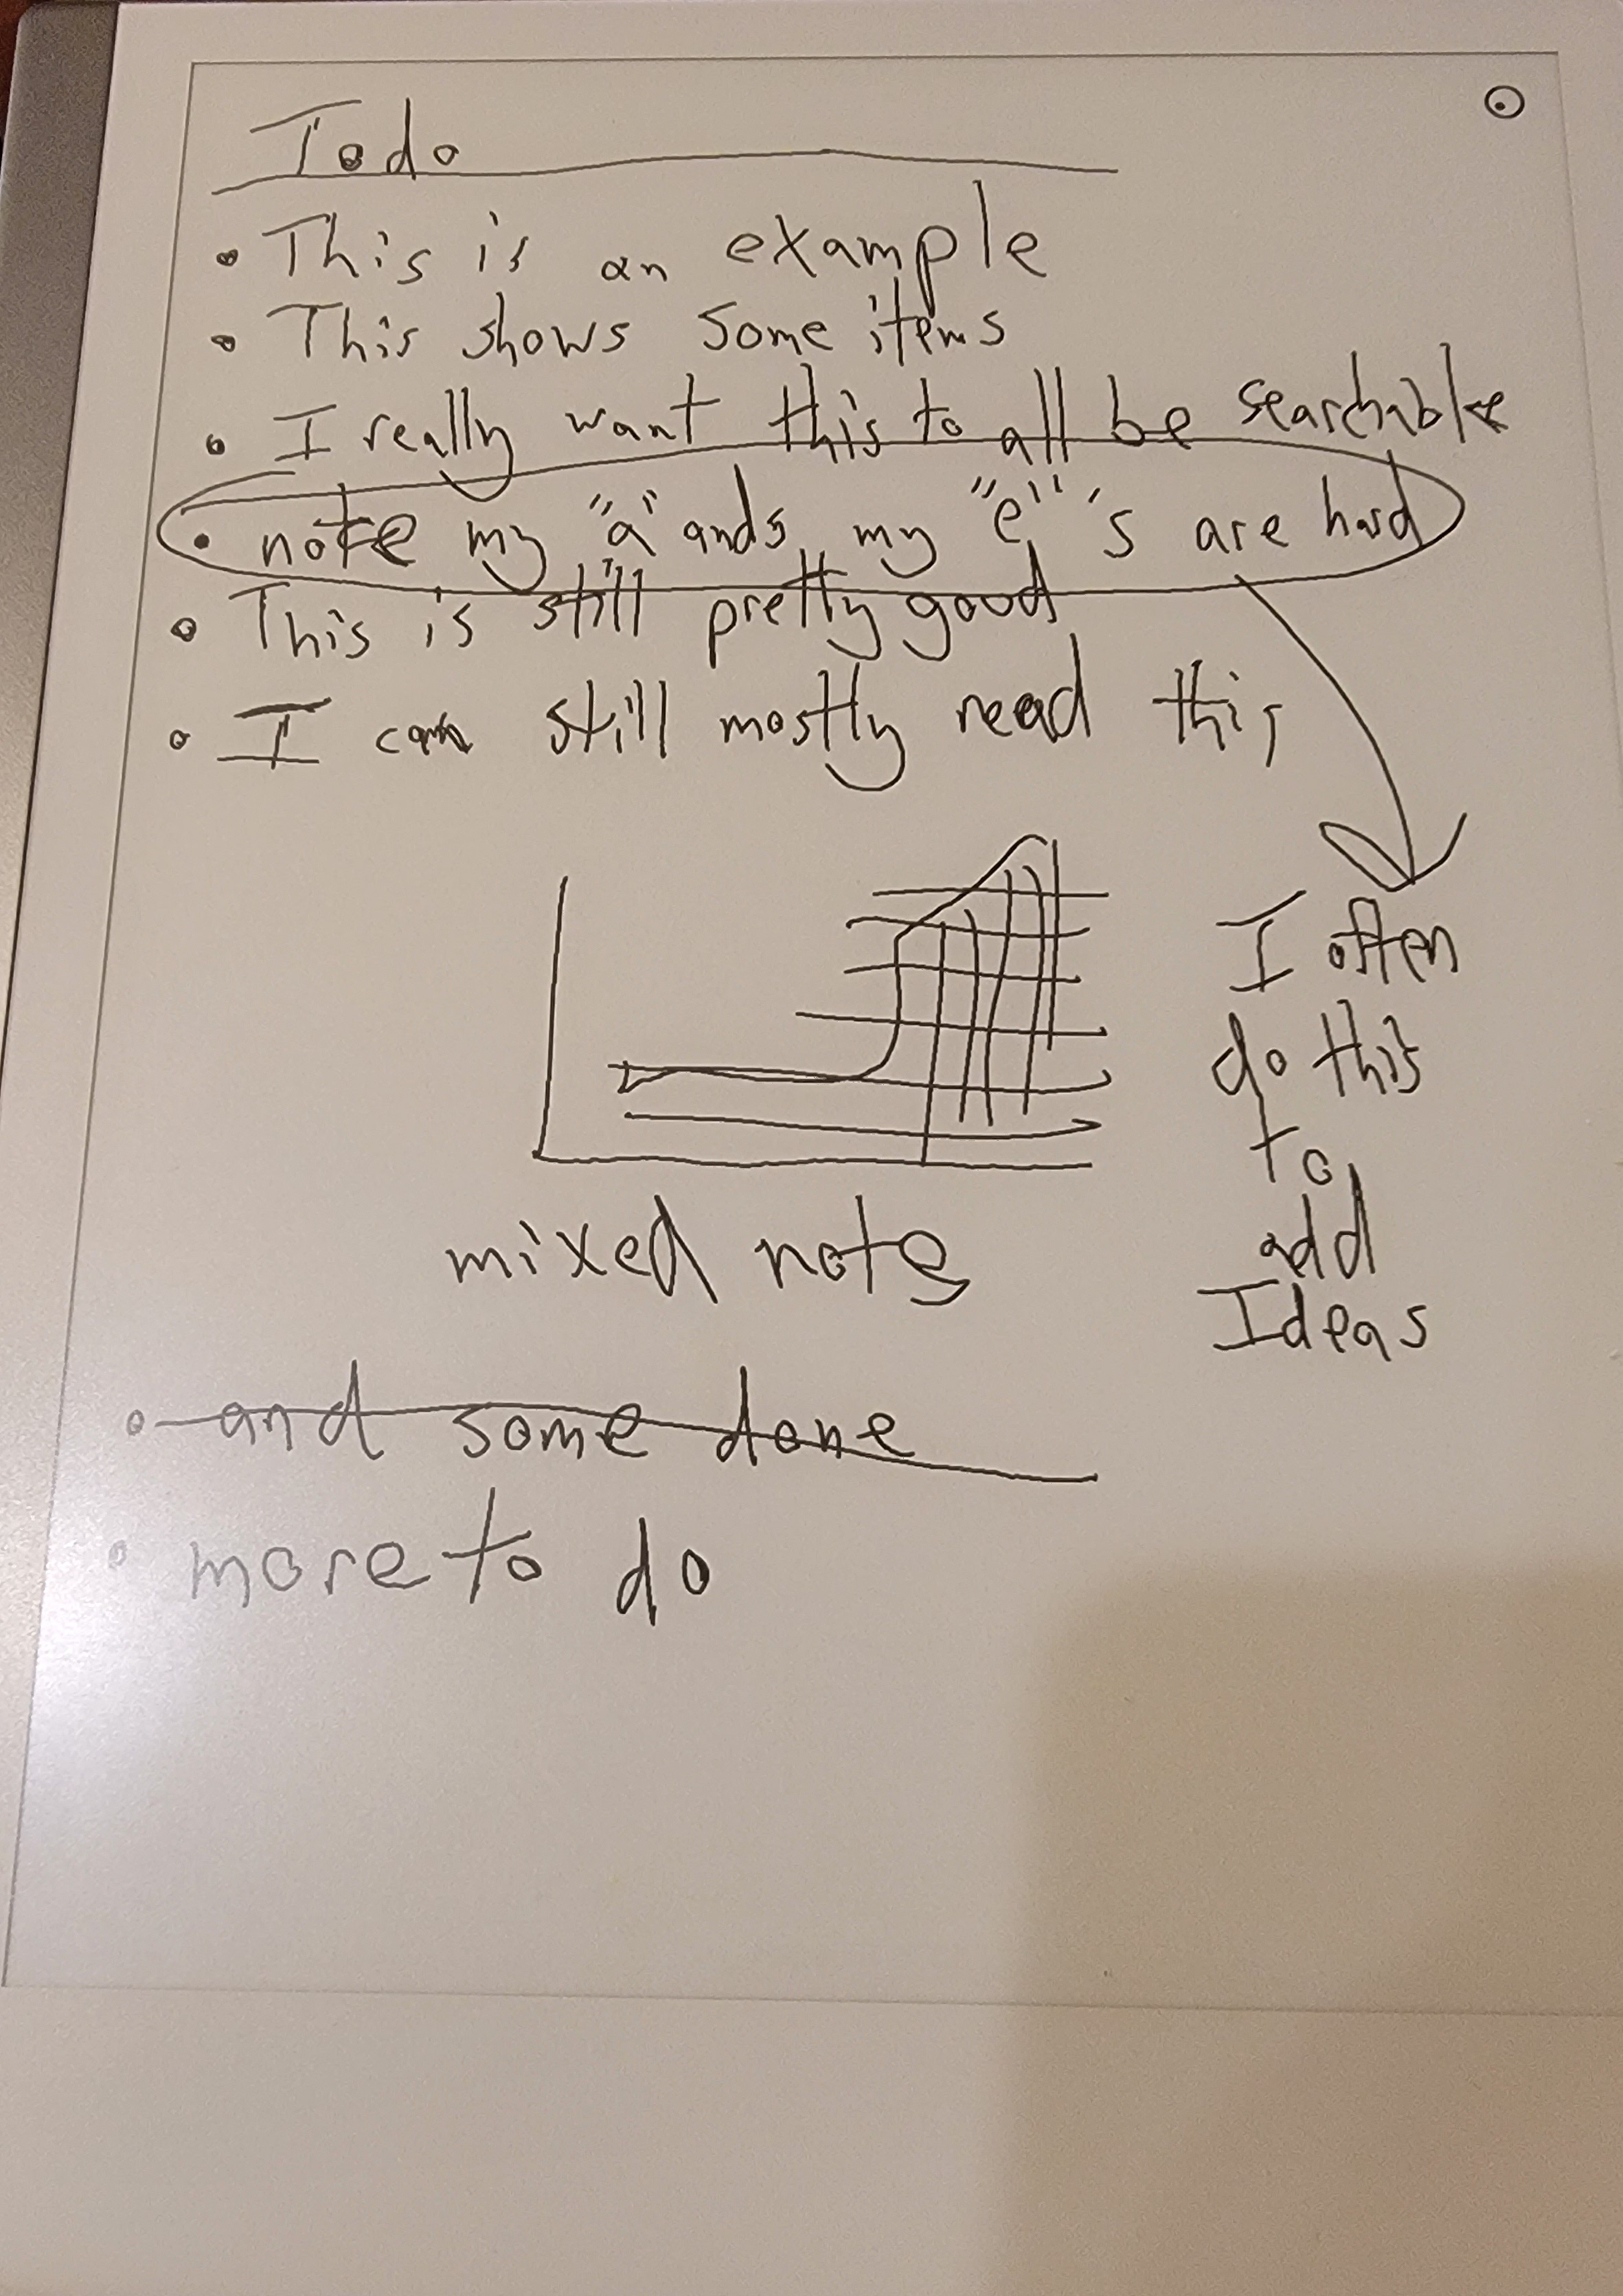 Todo
• This is an example
• This shows some items
• I really want this to all be searchable
• note my "a" ands my "e"'s are hard
• This is still pretty good
• I can still mostly read this
I often
do this
to
add
Ideas
mixed note
• and some done
• more to do